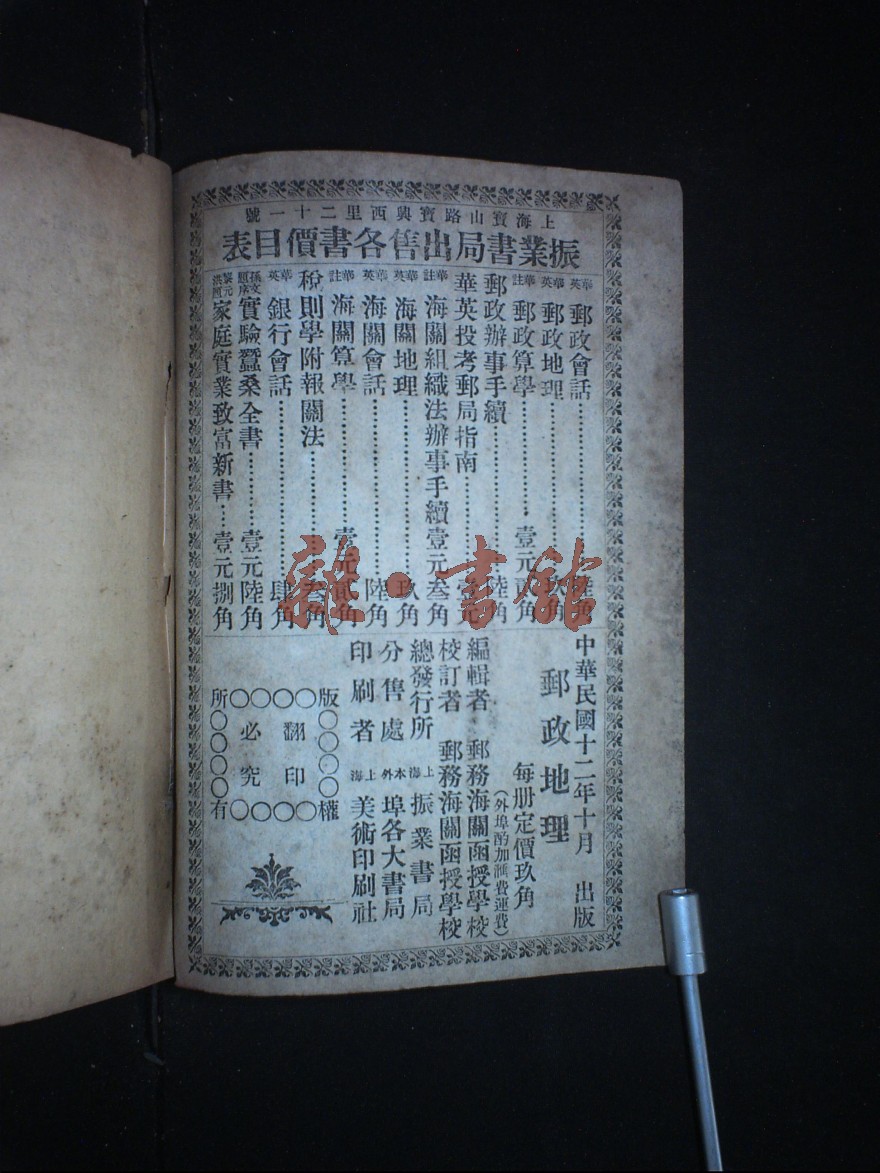 上海寶山路寶興西里二十一號
振業書局出售各書價目表
華英 郵政會話 陸角
華英 郵政地理 玖角
華註 郵政算學 壹元貳角
郵政辦事手續 陸角
華英投考郵局指南 壹元
華註 海關組織法辦事手續 壹元叁角
華英 海關地理 玖角
華英 海關會話 陸角
華註 海關算學 壹元貳角
稅則學附報關法 叁角
華英 銀行會話 肆角
孫文題序 實驗蠶桑全書 壹元陸角
黎元洪題 家庭實業致富新書 壹元捌角
中華民國十二年十月 出版
郵政地理
每册定價玖角
(外埠酌加匯費運費)
編輯者 郵務海關函授學校
校訂者 郵務海關函授學校
總發行所 上海 振業書局
分售處 本外埠各大書局
印刷者 上海 美術印刷社
版〇〇〇〇權
〇翻印〇〇
〇必究〇〇
所〇〇〇〇有
雜·書館